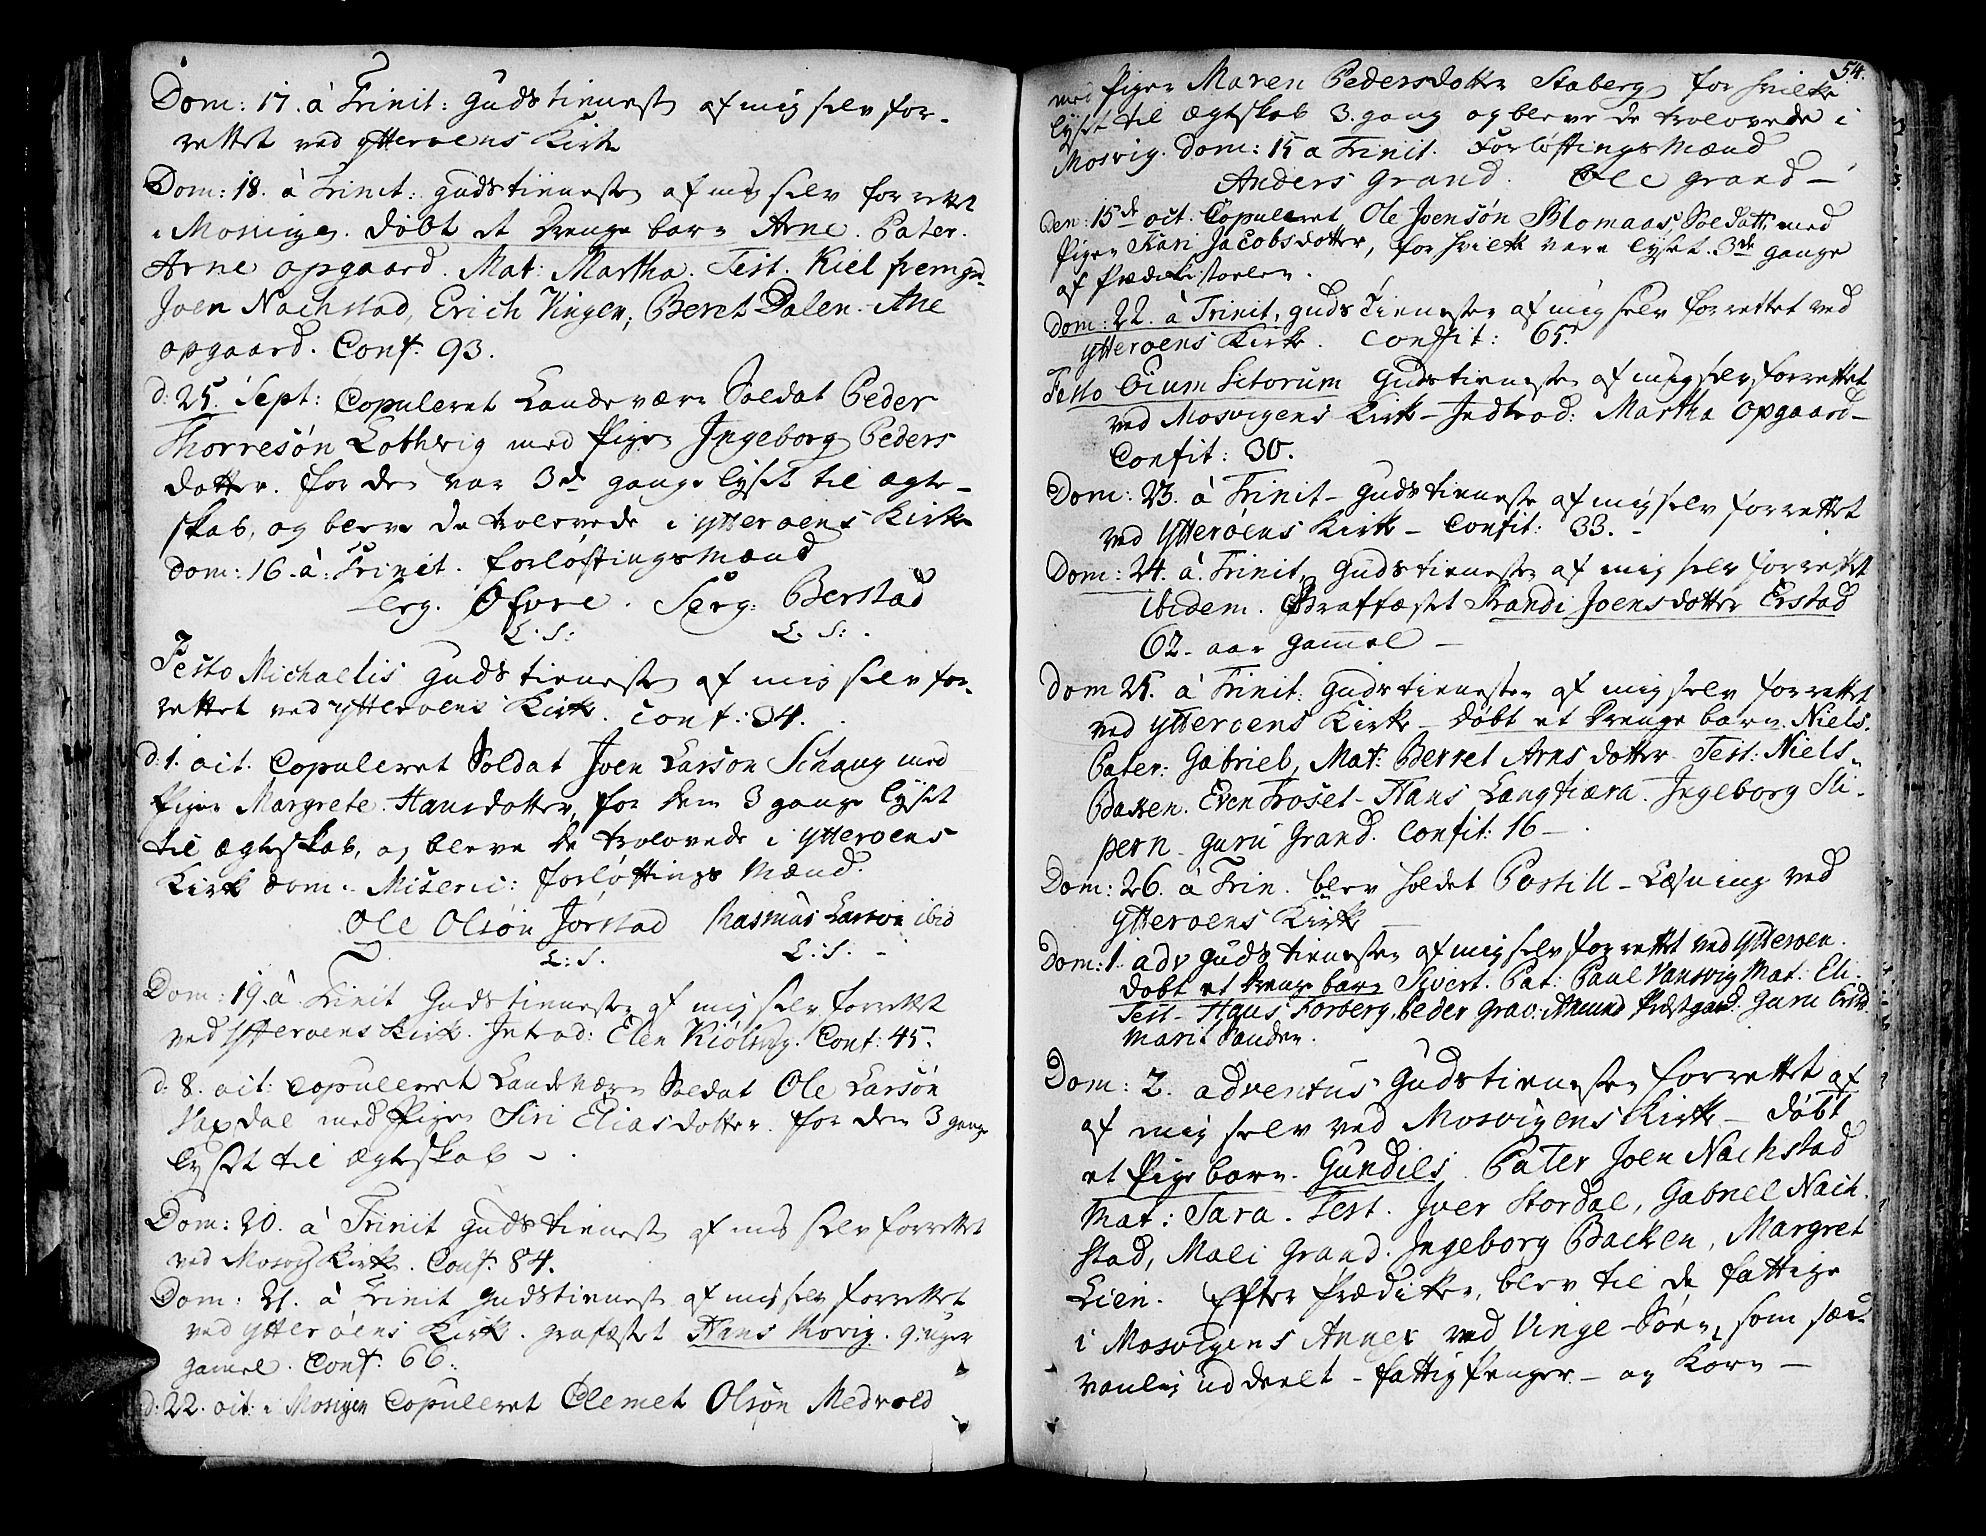 Dom: 17. à Trinit: Gudstieneste af mig selv for-
rettet ved Ytterøens Kirke
Dom: 18. à Trinit: gudstieneste af mig selv forrettet
i Mosvigen. døbt et Drenge barn Arne. Pater.
Arne opgaard. Mat: Martha. Test. Kiel fremgd.
Joen Nachstad, Erich Vingen, Beret Dalen. Ane
opgaard. Conf. 93.
d: 25. Sept: Copuleret Landeværn Soldat Peder
Thorresøn Lothvig med Pigen Ingeborg Peders
dotter. for dem var 3de gange lyset til ægte-
skab, og bleve de trolovede i Ytterøens Kirke
Dom: 16. à: Trinit. forløftingsmænd
Serg. Øfvre. Serg: Berstad
L: S: L: S: .
Festo Michaelis gudstieneste af mig selv for-
rettet ved Ytterøens Kirke. Conf: 34.
d. 1. oct. Copuleret Soldat Joen Larsøn Schaug med
Pigen Margrete Hansdotter, for dem 3 gange lyset
til ægteskab, og bleve de trolovede i Ytterøens
Kirke Dom. Miseric: forløftings Mænd.
Ole Olsøn Jørstad Rasmus Larsøn ibid
L: S. L: S. -
Dom: 19. à Trinit Gudstieneste af mig selv forrettet
ved Ytterøens Kirk. Introd: Elen Kiølsvig. Conf: 45.
d: 8. oct: Copuleret Landeværn Soldat Ole Larsøn
Vaxdal med Pigen Siri Eliasdotter. for dem 3 gange
lyset til ægteskab -
Dom: 20. à Trinit gudstieneste af mig selv forrettet
ved Mosvigs Kirke. Conf. 84.
Dom: 21. à Trinit gudstieneste af mig selv forrettet
ved Ytterøens Kirk. grafæstet Hans Rovig. 9: uger
gamel. Conf: 66.
d: 22. oct: i Mosvigen Copuleret Clemet Olsøn Medvold
54.
med Pigen Maren Pedersdotter Staberg for hvilke
lyset til ægteskab 3. gang og bleve de trolovede i
Mosvig. Dom: 15 a Trinit. Forløftingsmænd
Anders Grand. Ole grand -
Den: 15de oct. Copuleret Ole Joensøn Blomaas, Soldatt, med
Pigen Kari Jacobsdotter, for hvilke vare lyset 3de gange
af Prædikestoelen.
Dom: 22. à Trinit, gudstieneste af mig selv forrettet ved
Ytterøens Kirke. Confit: 65.
Festo Oium Sctorum Gudstieneste af mig selv forrettet
ved Mosvigens Kirke - Indtrod: Martha Opgaard-
Confit: 30.
Dom: 23. à Trinit - Gudstieneste af mig selv forrettet
ved Ytterøens Kirk - Confit: 33. -
Dom: 24. à. Trinit, Gudstieneste af mig selv forrettet
ibidem. Graffæstet Randi Joensdotter Erstad
62. aar gamel -
Dom 25. à Trinit: Gudstienesten af mig selv forrettet
ved Ytterøens Kirke - døbt et Drenge barn. Niels.
Pater: Gabriel, Mat: Berret Arnsdotter. Test: Niels
Backen. Even Troset - Hans Langtiæra. Ingeborg Sli-
pern. Guru Grand. Confit: 16 -
Dom: 26. à Trin. blev holdet Postill-Læsning ved
Ytterøens Kirke
Dom: 1. adv Gudstienesten af mig selv forrettet ved Ytterøen.
døbt et Drenge barn Sivert. Pat: Paul Vansvig Mat: Eli.
Test - Hans Forberg, Peder Grav: Amund Præstgaard. Guru
Marit Sanden.
Dom: 2. adventus Gudstienesten forrettet af
af mig selv ved Mosvigens Kirke - døbt
et Pigebarn. Gundild. Pater Joen Nachstad
Mat: Sara. Test. Iver Stordal, Gabriel Nach-
stad, Mali Grand. Ingeborg Backen, Margret
Lien. Efter Prædiken, blev til de fattige
i Mosvigens Annex ved Vinge-Søen, som sæd-
vanlig uddeelt - fattig Penger - og Korn -